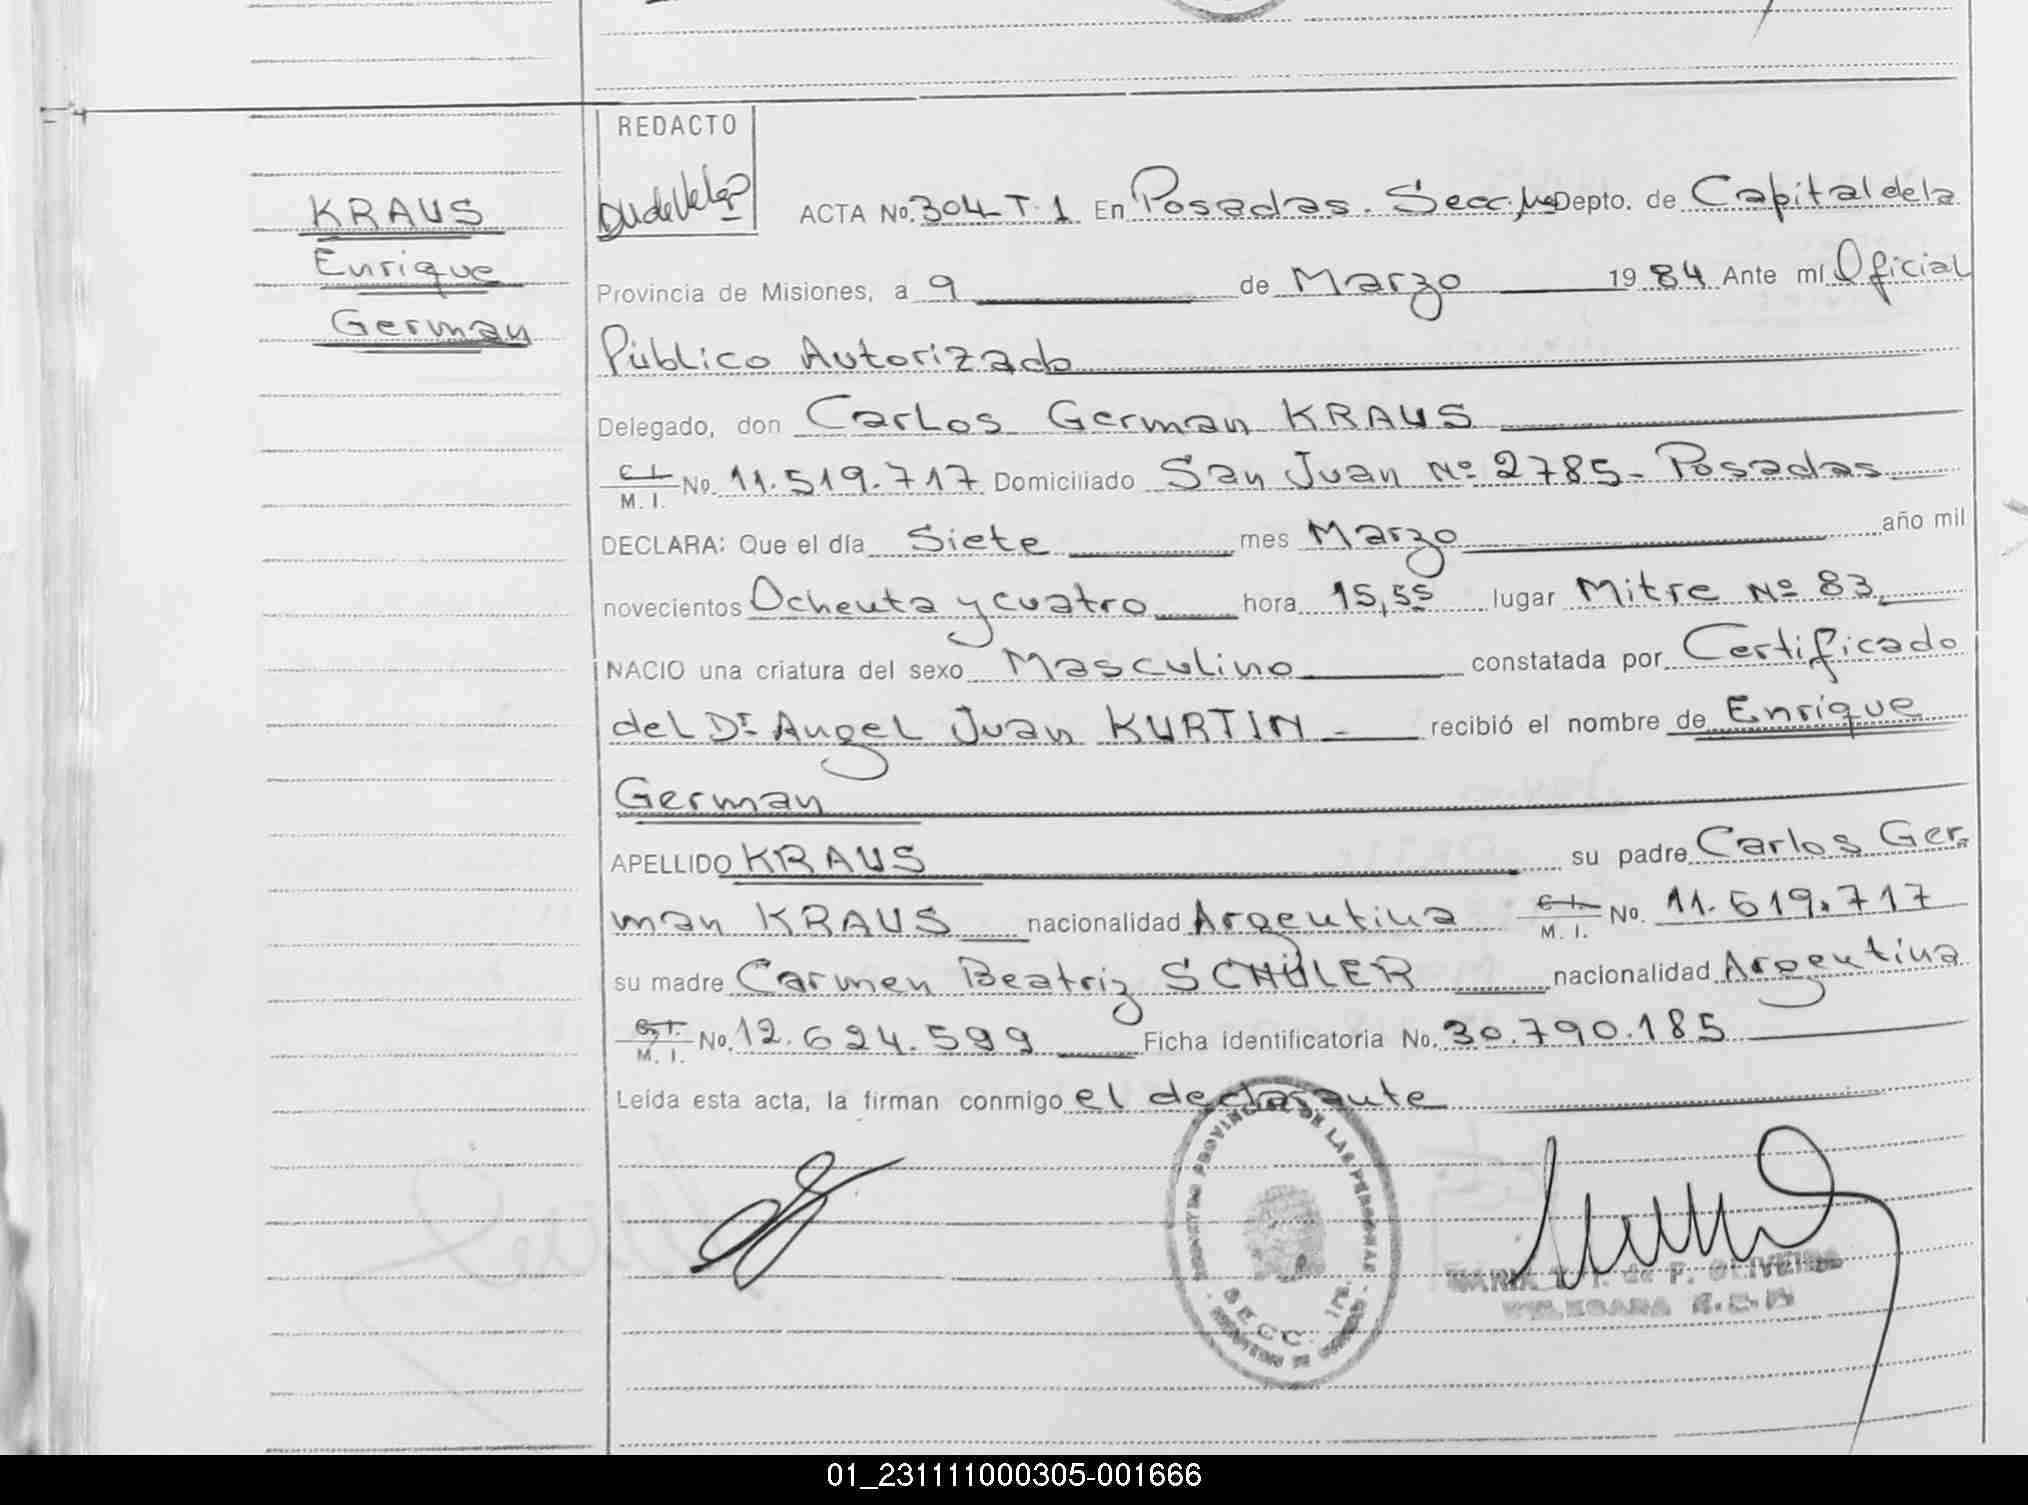 REDACTO
KRAUS
Enrique
German
ACTA No. 304-T.1 En Posadas. Secc. Depto. de Capital de la
Provincia de Misiones, a 9 de Marzo 1984 Ante mí Oficial
Público Autorizado
Delegado, don Carlos German KRAUS
C.I. M.I. No. 11.519.717 Domiciliado San Juan Nº 2785 - Posadas
DECLARA: Que el día Siete mes Marzo año mil
novecientos Ochenta y cuatro hora 15,55 lugar Mitre Nº 83
NACIO una criatura del sexo Masculino constatada por Certificado
del Dr. Angel Juan KURTIN - recibió el nombre de Enrique
German
APELLIDO KRAUS su padre Carlos Ger-
man KRAUS nacionalidad Argentina C.I. M.I. No. 11.519.717
su madre Carmen Beatriz SCHÜLER nacionalidad Argentina
C.I. M.I. No. 12.624.599 Ficha identificatoria No. 30.790.185
Leída esta acta, la firman conmigo el declarante
PROVINCIAL DE LAS PERSONAS
SECC. 1ra.
MARIA de F. OLIVEIRA
DELEGADA
01_231111000305-001666